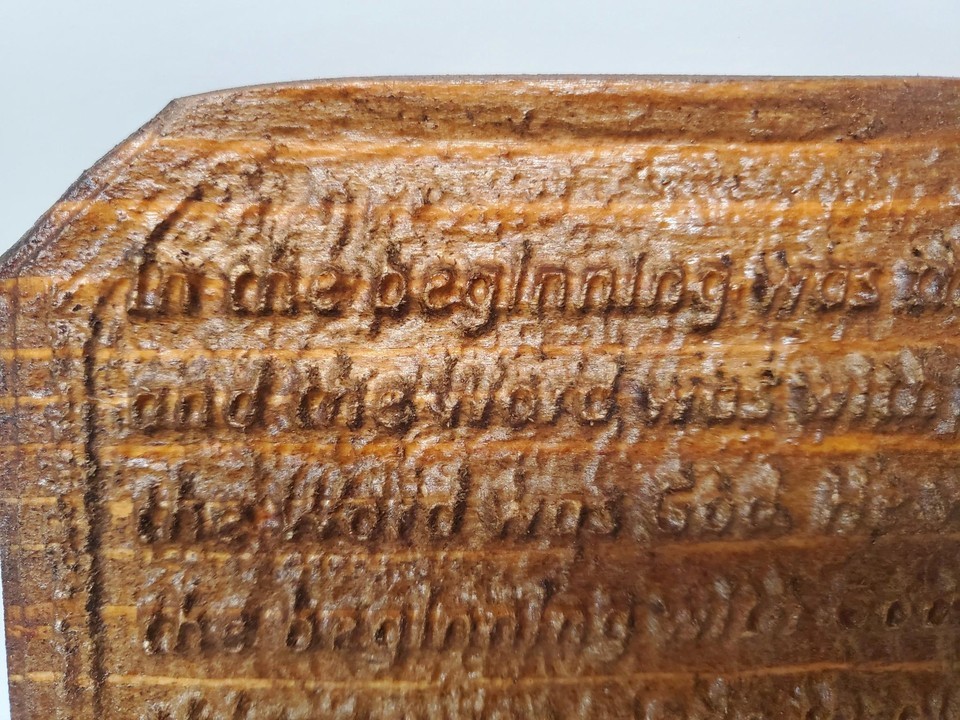 In the beginning was
and the Word was with
the Word was God. He
the beginning with